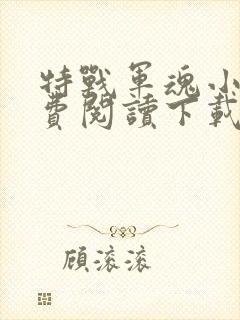 特戰軍魂小
費閱讀下載
顧滾滾